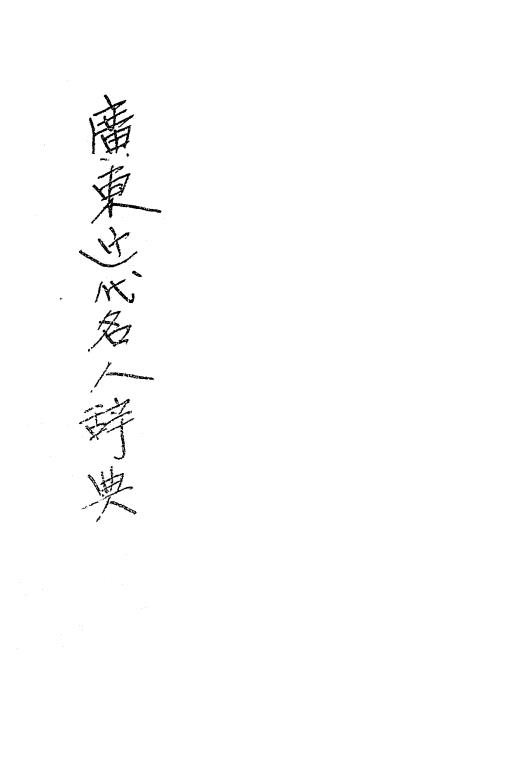 廣東近代名人辞典